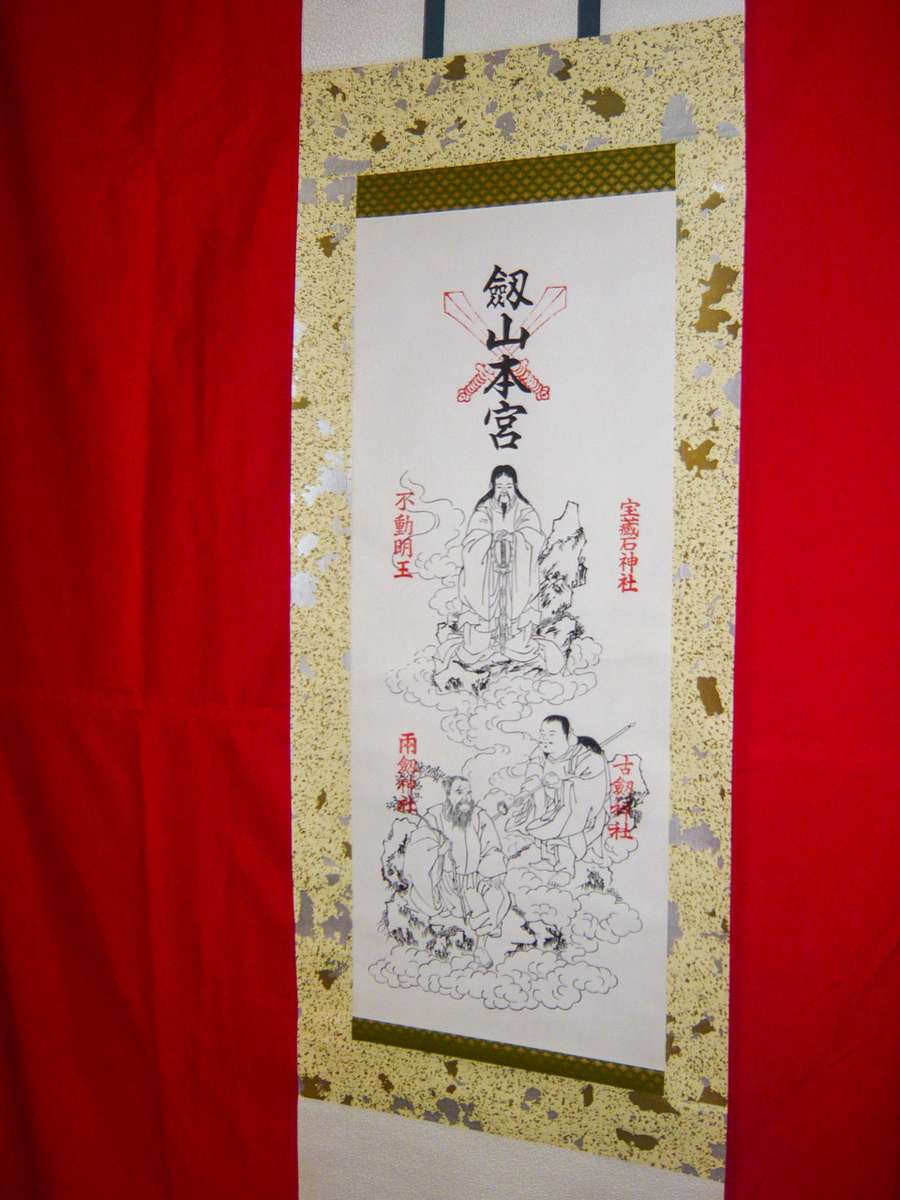 劔山本宮
宝藏石神社
不動明王
古劔神社
両劔神社